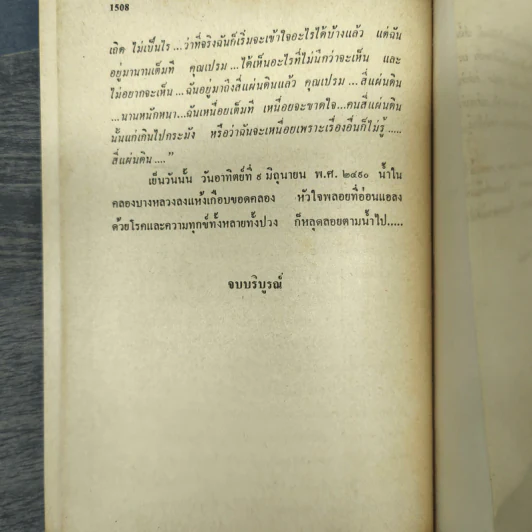 1508
เถิด ไม่เป็นไร ...ว่าที่จริงฉันก็เริ่มจะเข้าใจอะไรได้บ้างแล้ว แต่ฉัน
อยู่มานานเต็มที คุณเปรม ...ได้เห็นอะไรที่ไม่นึกว่าจะเห็น และ
ไม่อยากจะเห็น ...ฉันอยู่มาถึงสี่แผ่นดินแล้ว คุณเปรม ... สี่แผ่นดิน
...นานหนักหนา...ฉันเหนื่อยเต็มที เหนื่อยจะขาดใจ...คนสี่แผ่นดิน
นั้นแก่เกินไปกระมัง หรือว่าฉันจะเหนื่อยเพราะเรื่องอื่นก็ไม่รู้ .....
สี่แผ่นดิน ...."
เย็นวันนั้น วันอาทิตย์ที่ ๙ มิถุนายน พ.ศ. ๒๔๙๐ น้ำใน
คลองบางหลวงลงแห้งเกือบขอดคลอง หัวใจพลอยที่อ่อนแอลง
ด้วยโรคและความทุกข์ทั้งหลายทั้งปวง ก็หลุดลอยตามน้ำไป.....
จบบริบูรณ์